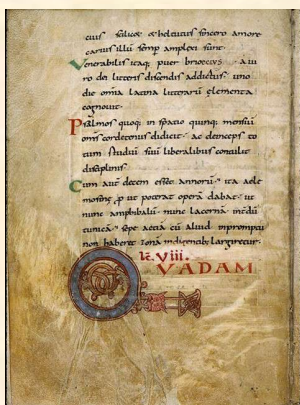 cuius felicae & heleucus sincero amore
carius illū semp amplexi sunt.
Venerabilis itaq; puer brioccus a uı
ro dei litteris discendis addictus. uno
die omīa latina litterarū elementa
cognouit.
Psalmos quoq; in spatio quinq; mensiū
om̄s cordetenus didicit. ac deinceps to
tum studiū suū liberalibus contulit
disciplinis.
Cum aut̄ decem esset annorū ita aele
mosine ꝓ ut poterat operā dabat. ut
nunc amphibalū. nunc lacernā. inťdū
tunicā sepe &eciā cū aliud inpromptu
non haberet zonā indigentib; largiretur.
k. viii.
QVADAM